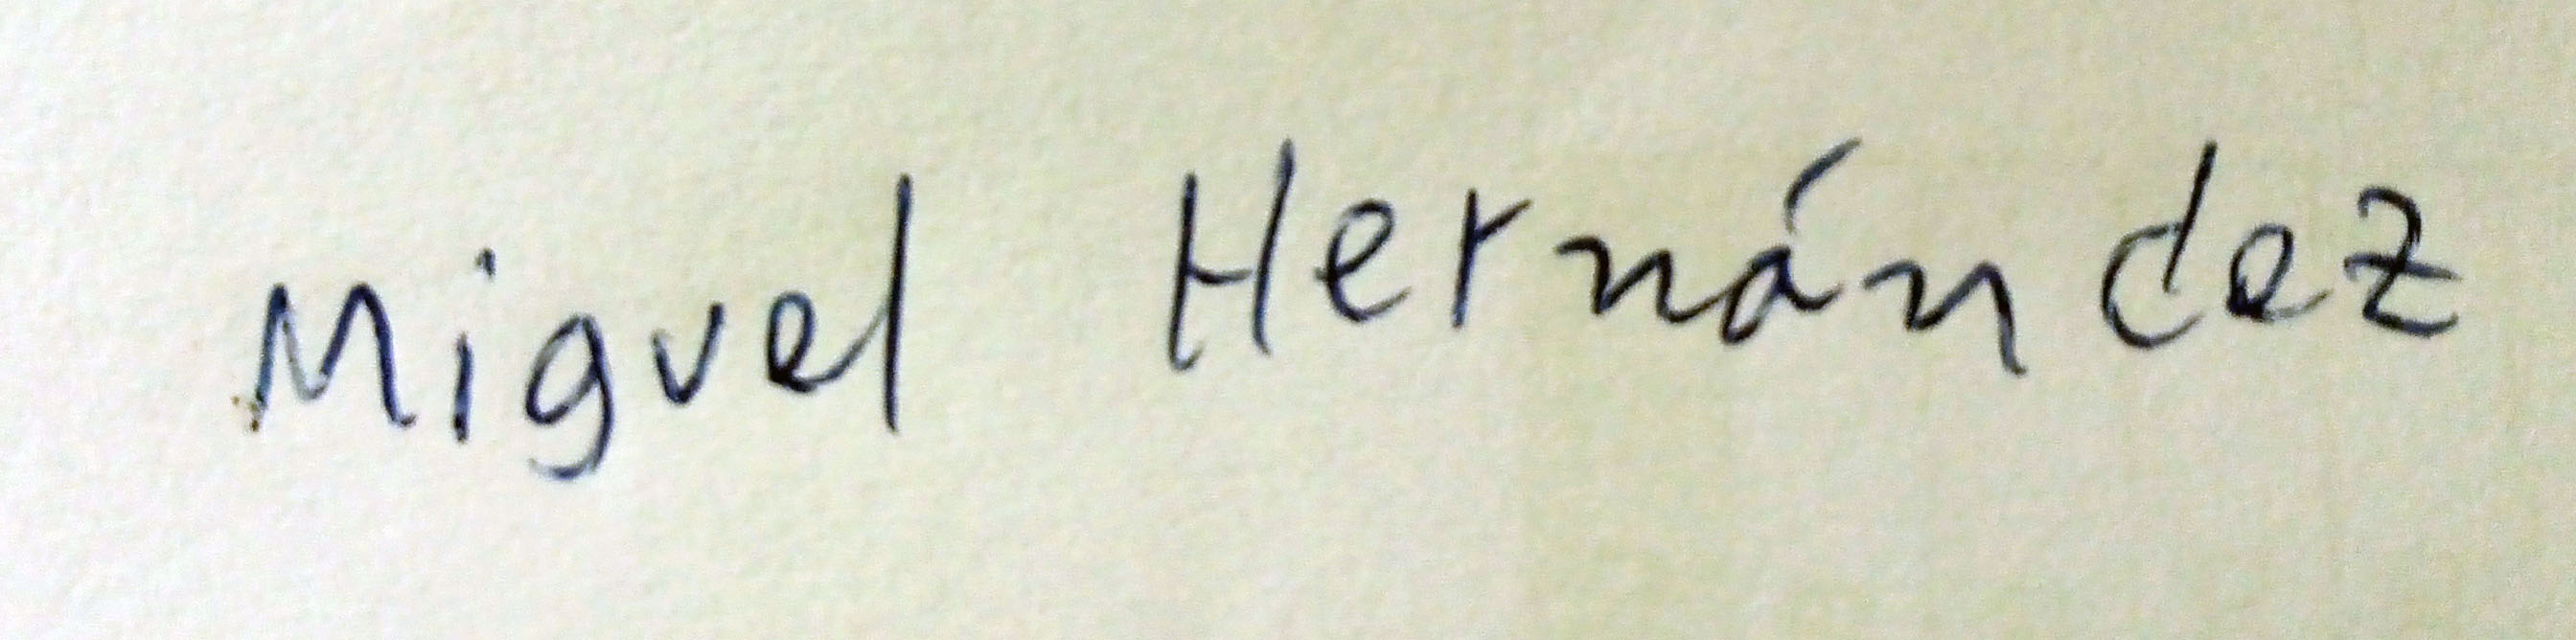 Miguel Hernández